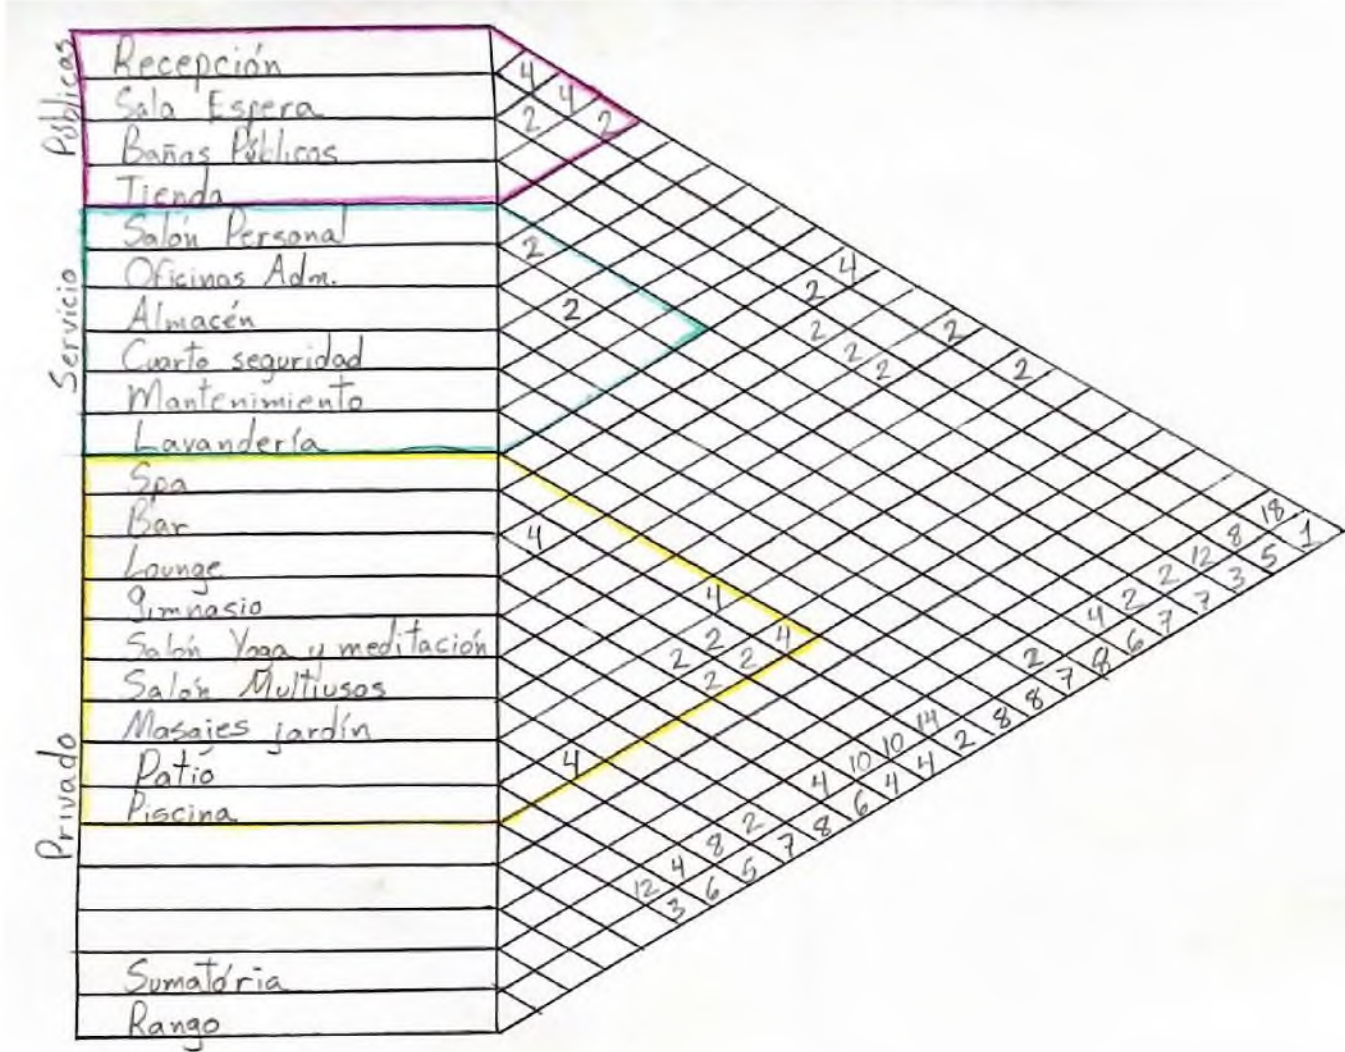 Públicas
Recepción
Sala Espera
Baños Públicos
Tienda
Servicio
Salón Personal
Oficinas Adm.
Almacén
Cuarto seguridad
Mantenimiento
Lavandería
Privado
Spa
Bar
Lounge
gimnasio
Salón Yoga y meditación
Salón Multiusos
Masajes jardín
Patio
Piscina
Sumatória
Rango
4
4
2 2
2
4
2
2
2 2
2 2
2
18
4 8 1
12 5
4 2 3
4 2 7
2 2 4 6
2 2 8
2 7
14 8
4 10 8
10 2
4 4
2 4
8 6
4 8
12 7
5
6
3